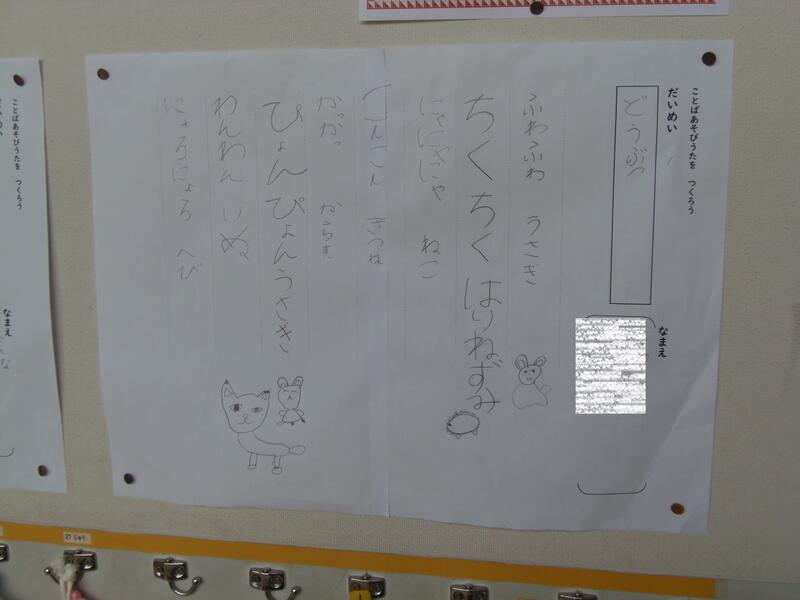 ことばあそびうたを つくろう
だいめい
どうぶつ
なまえ
ふわふわ うさぎ
ちくちく はりねずみ
にゃにゃにゃ ねこ
こんこん きつね
かっかっ からす
ぴょんぴょんうさぎ
わんわん いぬ
にょろにょろ へび
ことばあそびうたを つくろう
なまえ